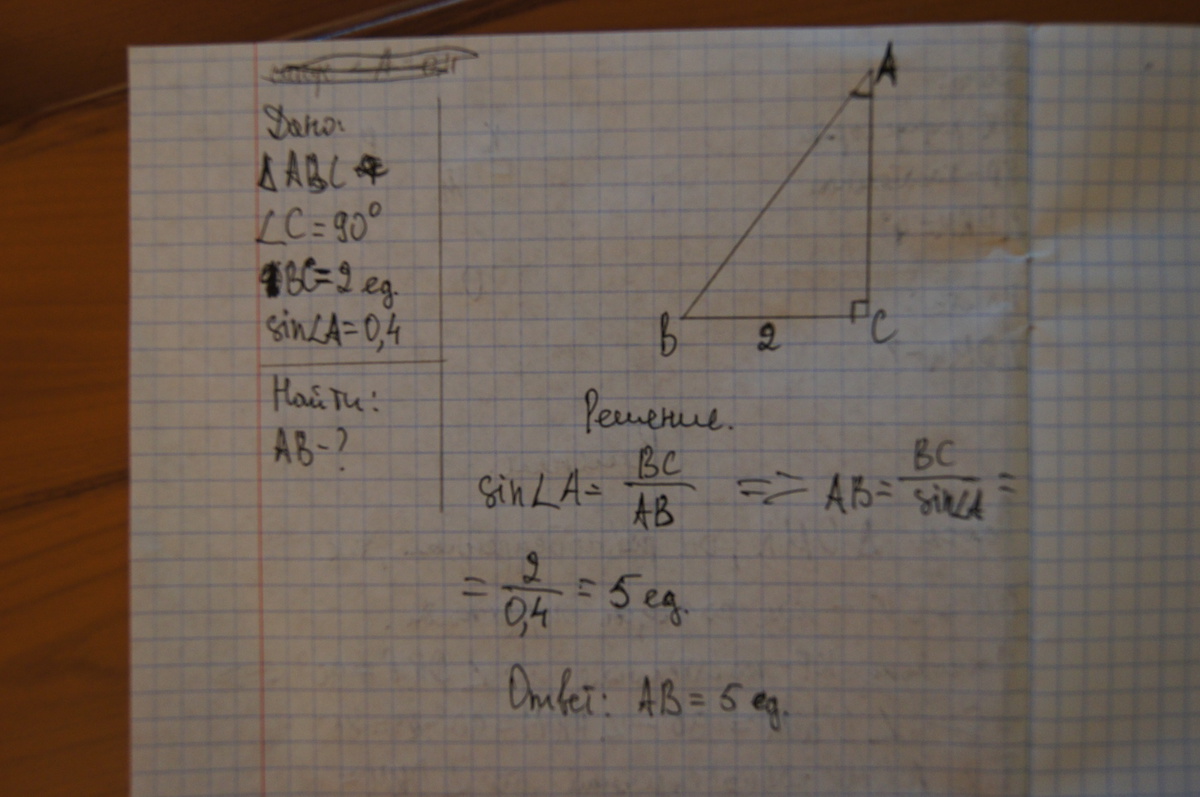 Дано:
ΔABC
∠C=90°
BC=2 ед.
sin∠A=0,4
Найти:
AB-?
A
B
2
C
Решение.
sin∠A= BC/AB => AB= BC/sin∠A =
= 2/0,4 = 5 ед.
Ответ: AB = 5 ед.